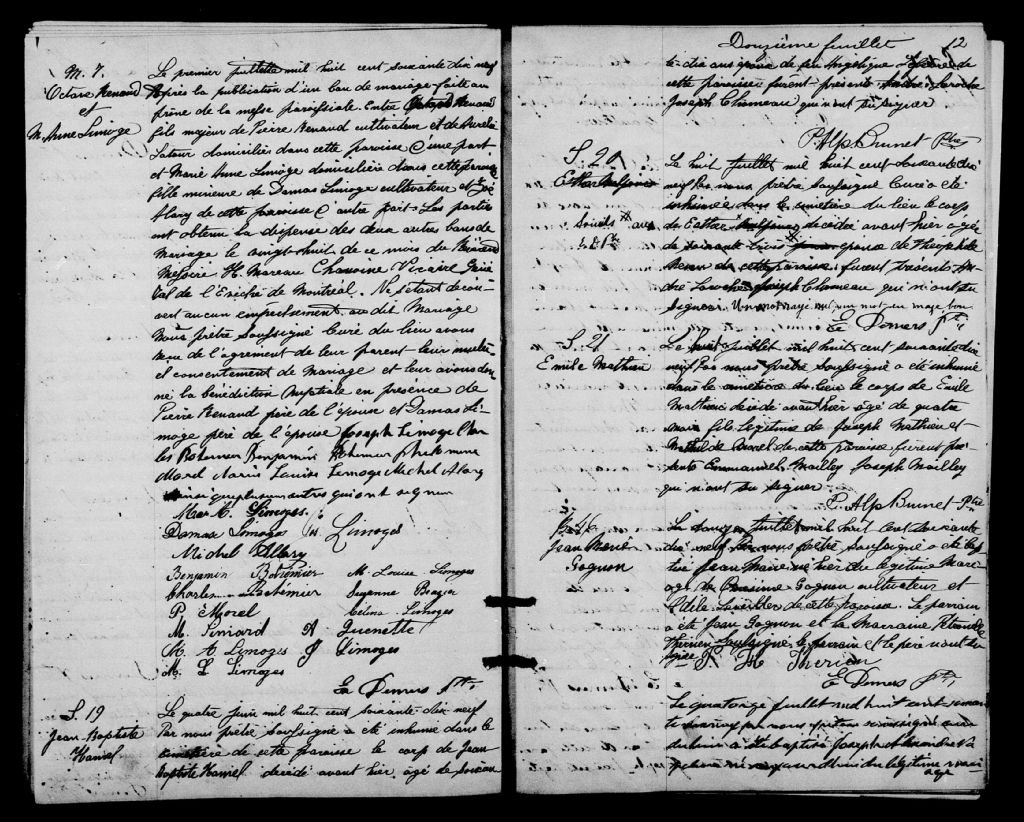 M. 7.
Octave Renaud
et
M. Anne Limoge
Le premier juillette mil huit cent soixante dix neuf
Après la publication d'un ban de mariage faite au
prône de la messe paroissiale. Entre Octave Renaud
fils majeur de Pierre Renaud cultivateur et de Aurélie
Latour domiciliés dans cette paroisse d'une part
et Marie Anne Limoge domiciliée dans cette paroisse
fille mineure de Damas Limoge cultivateur et Zoé
Alary de cette paroisse d'autre part. Les parties
ont obtenu la dispense des deux autres bans de
mariage le vingt-huit de ce mois du Révérend
Messire H. Moreau Chanoine Vicaire Géné
ral de l'Evêché de Montréal. Ne s'étant décou-
vert aucun empêchement au dit Mariage
Nous prêtre soussigné Curé du lieu avons
reçu de l'agrément de leur parent leur mutu-
el consentement de Mariage et leur avons don
né la bénédiction nuptiale en présence de
Pierre Renaud père de l'époux et Damas Li-
moge père de l'épouse Joseph Limoge Char
les Bohemier Benjamin Bohemier
Morel Marie Louise Limoge Michel Alary
ainsi que plusieurs autres qui ont signer
Mar A. Limoges.
Damas Limoge Jos Limoges
Michel Allary
Benjamin Bohémier M. Louise Limoges
Charles Bohémier Suzenne
P. Morel Célina Limoges
M. Simard A Guenette
M. A Limoges J Limoges
M. L Limoges
Ed Demers Ptre
S. 19
Jean Baptiste
Hamel
Le quatre juin mil huit cent soixante-dix neuf
Par nous prêtre soussigné a été inhumé dans le
cimetière de cette paroisse le corp de Jean
Baptiste Hamel décédé avant hier âgé de soixan
Douzième feuillet 12
te-dix ans époux de feu Angélique
cette paroisse furent présents Laroche
Joseph Chameau qui n'ont su signer
P. Alp Brunet Ptre
S. 20
Le huit juillet mil huit cent soixante dix
neuf Par nous prêtre soussigné Curé a été
inhumée dans le cimetière du lieu le corps
de Esther décédée avant hier âgée
de soixante trois épouse de Theophile
de cette paroisse, furent présents An-
dré Laroche Joseph Chameau qui n'ont su
signer. Un mot rayé nul un mot en marge bon
Ed Demers Ptre
S. 21
Emile Mathieu
Le huit juillet mil huit cent soixante dix
neuf Par nous prêtre soussigné a été inhumé
dans le cimetière du lieu le corps de Emile
Mathieu décédé avant hier âgé de quatre
mois fils légitime de Joseph Mathieu et
Mathilde de cette paroisse furent pré
sents Emmanuel Mailley Joseph Mailley
qui n'ont su signer
P. Alp Brunet Ptre
B. 46
Jean Marie
Gagnon
Le douze juillet mil huit cent soixante
dix neuf Par nous prêtre soussigné a été bap
tisé Jean Marie né hier du légitime Mari-
age de Onésime Gagnon cultivateur et
Odile de cette paroisse. Le parrain
a été Jean Gagnon et la Marraine
Therien soussigné le parrain et le père n'ont su
signer F. H Therien
Ed Demers Ptre
Le quatorze juillet mil huit cent soixan
te dix neuf par nous prêtre soussigné
a été baptisé Joseph
né aujourd'hui du légitime mari
age